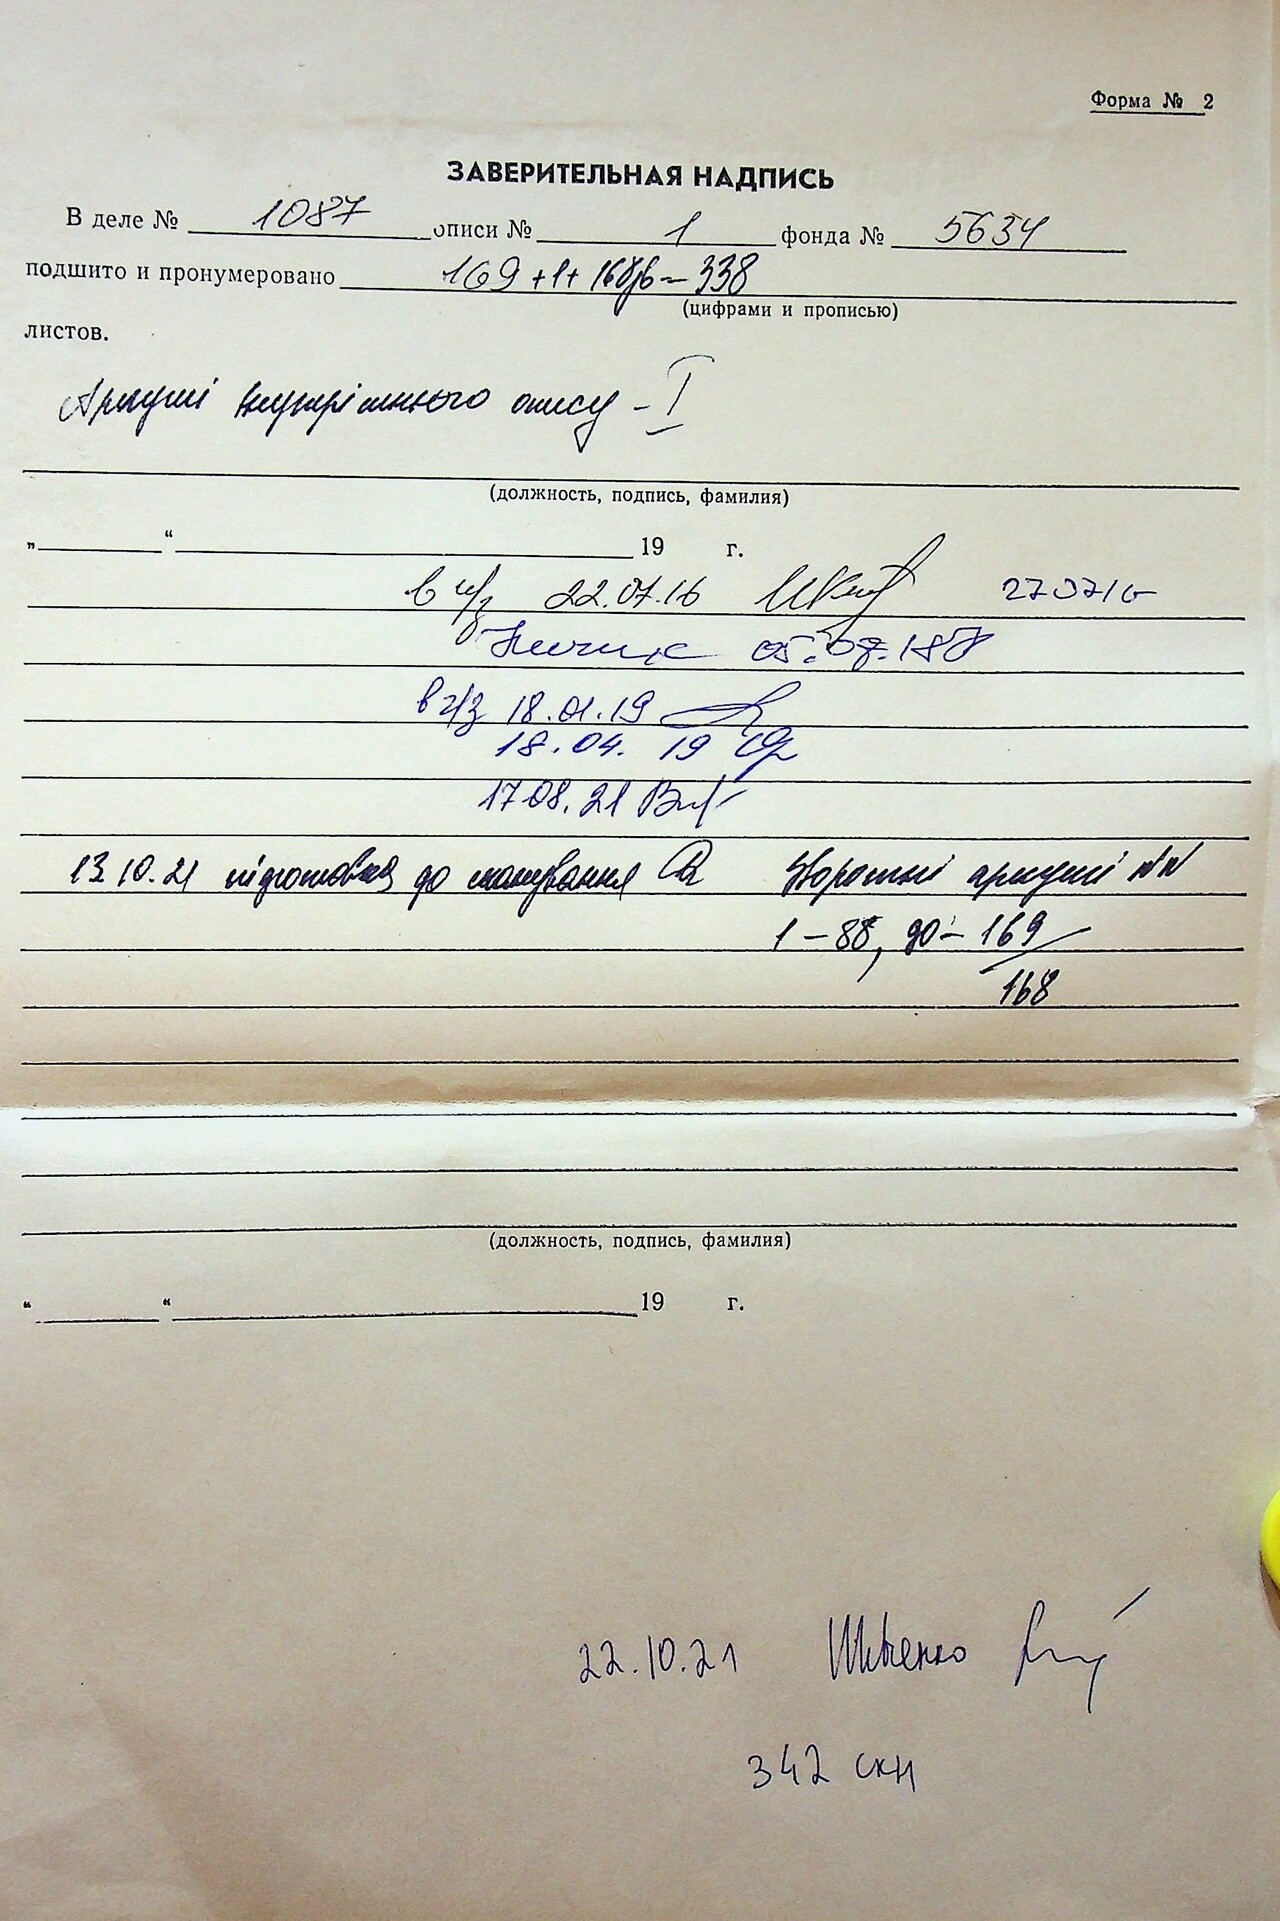 Форма № 2
ЗАВЕРИТЕЛЬНАЯ НАДПИСЬ
В деле № 1087 описи № 1 фонда № 5634
подшито и пронумеровано 169+1+168зв=338
(цифрами и прописью)
листов.
Аркуші внутрішнього опису - I
(должность, подпись, фамилия)
„ “ 19 г.
в ч/з 22.07.16 270716
05.07.18
в ч/з 18.01.19
18.04.19
17.08.21
13.10.21 підготовка до сканування Зворотні аркуші №№
1-88, 90-169
168
(должность, подпись, фамилия)
“ “ 19 г.
22.10.21
342 скн